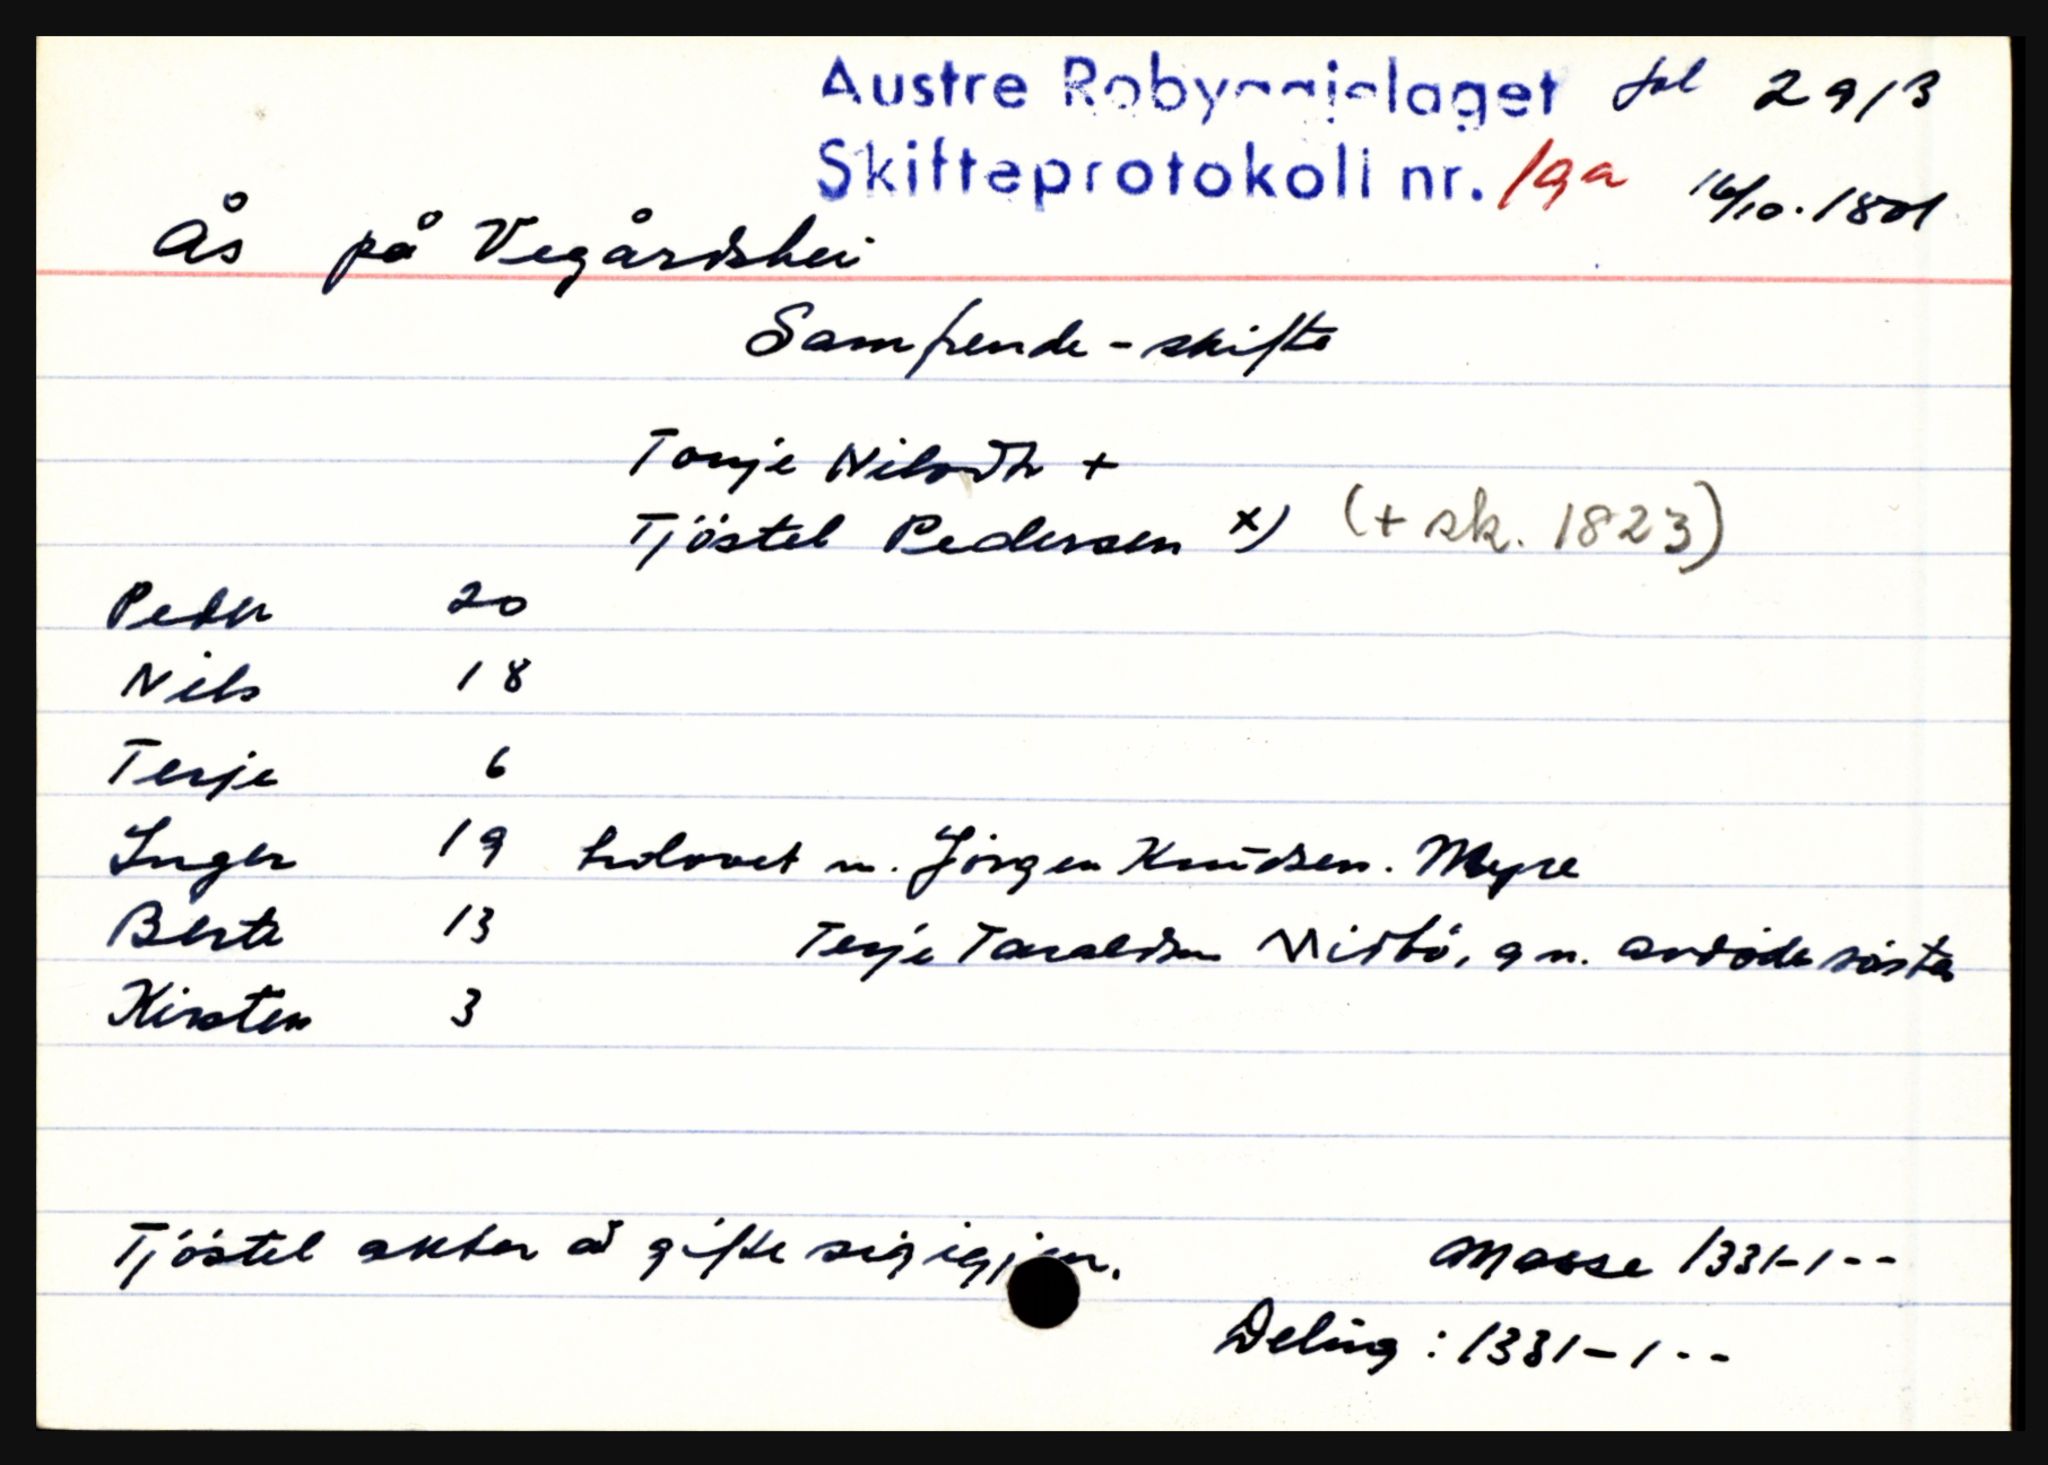 Austre Robyggjelaget fol 291B
Skifteprotokoll nr. 19a 16/10. 1801
Ås på Vegårdshei
Samfrende-skifte
Tonje Nilsdtr +
Tjöstel Pedersen x) (+ sk. 1823)
Peder 20
Nils 18
Terje 6
Inger 19 trolovet m. Jörgen Knudsen. Myre
Berte 13 Terje Taraldsen Midbö, g m. avdöde söster
Kirsten 3
Tjöstel akter å gifte sig igjen. Masse 1331-1--
Deling : 1331-1--